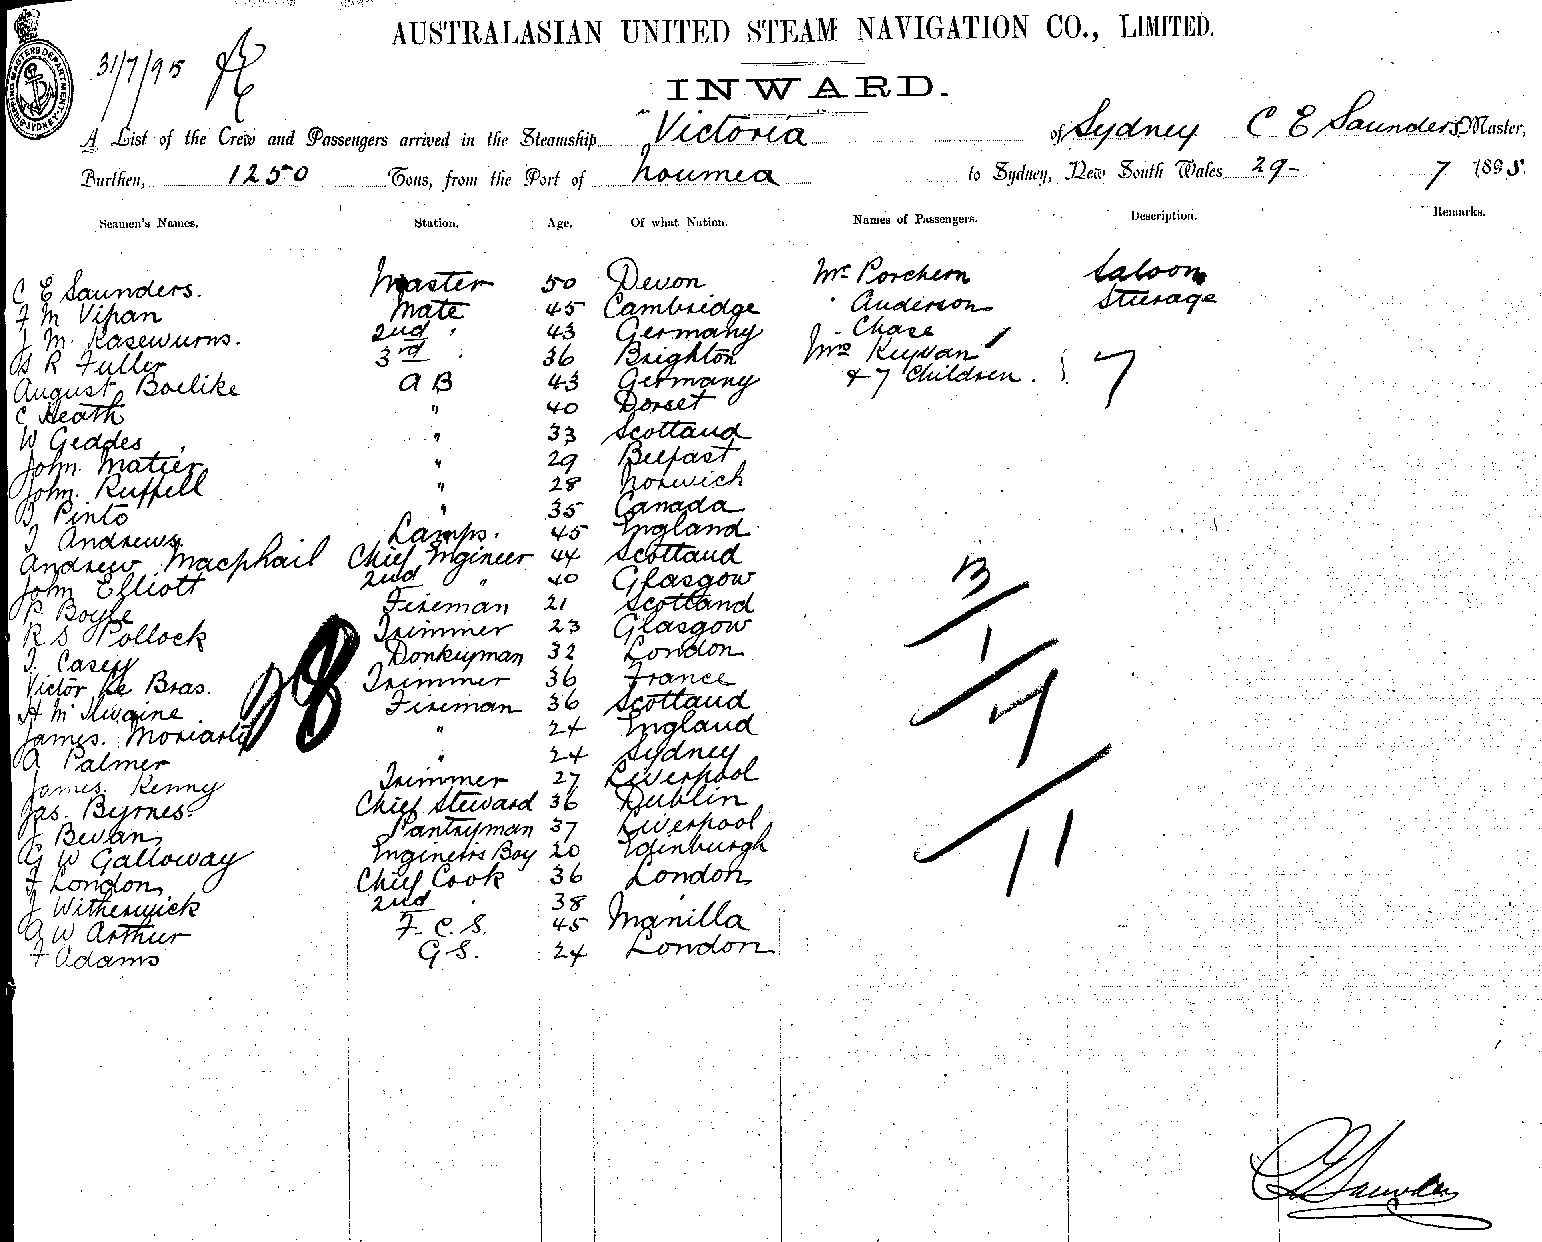 AUSTRALASIAN UNITED STEAM NAVIGATION CO., LIMITED.
31/7/95
INWARD.
A List of the Crew and Passengers arrived in the Steamship "Victoria" of Sydney C E Saunders Master,
Burthen, 1250 Tons, from the Port of Noumea to Sydney, New South Wales 29- 7 1895.
Seamen's Names. Station. Age. Of what Nation. Names of Passengers. Description. Remarks.
C E Saunders. Master 50 Devon Mr Porchern Saloon
F M Vipan Mate 45 Cambridge " Anderson Steerage
J M. Kasewurns. 2nd " 43 Germany " Chase
G R Fuller 3rd " 36 Brighton Mrs Kuyvan
August Boelike A B 43 Germany & 7 Children. 7
C Heath " 40 Dorset
W Geddes " 33 Scotland
John Matier " 29 Belfast
John Ruffell " 28 Norwich
B Pinto " 35 Canada
T Andrews Lamps. 45 England
Andrew Macphail Chief Engineer 44 Scotland
John Elliott 2nd " 40 Glasgow
P Boyle Fireman 21 Scotland
R S Pollock Trimmer 23 Glasgow
T. Casey Donkeyman 32 London
Victor Le Bras. Trimmer 36 France
H McIlwaine Fireman 36 Scotland
James Moriarty " 24 England
A Palmer " 24 Sydney
James Kenny Trimmer 27 Liverpool
Jas. Byrnes. Chief Steward 36 Dublin
J Bevan Pantryman 37 Liverpool
G W Galloway Engineers Boy 20 Edinburgh
F London Chief Cook 36 London
J Witherwick 2nd " 38 "
G W Arthur F. C. S. 45 Manilla
F Adams G S. 24 London
28
3/
1/
7/
11
C E Saunders